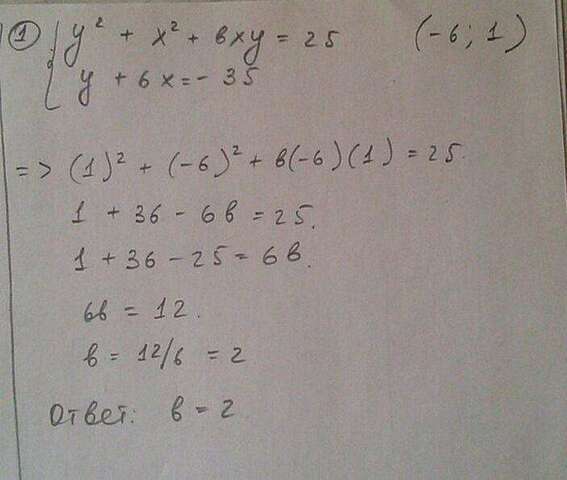 ① y² + x² + вxy = 25 (-6; 1)
y + 6x = - 35
=> (1)² + (-6)² + в(-6)(1) = 25.
1 + 36 - 6в = 25.
1 + 36 - 25 = 6в.
6в = 12.
в = 12/6 = 2
Ответ: в = 2